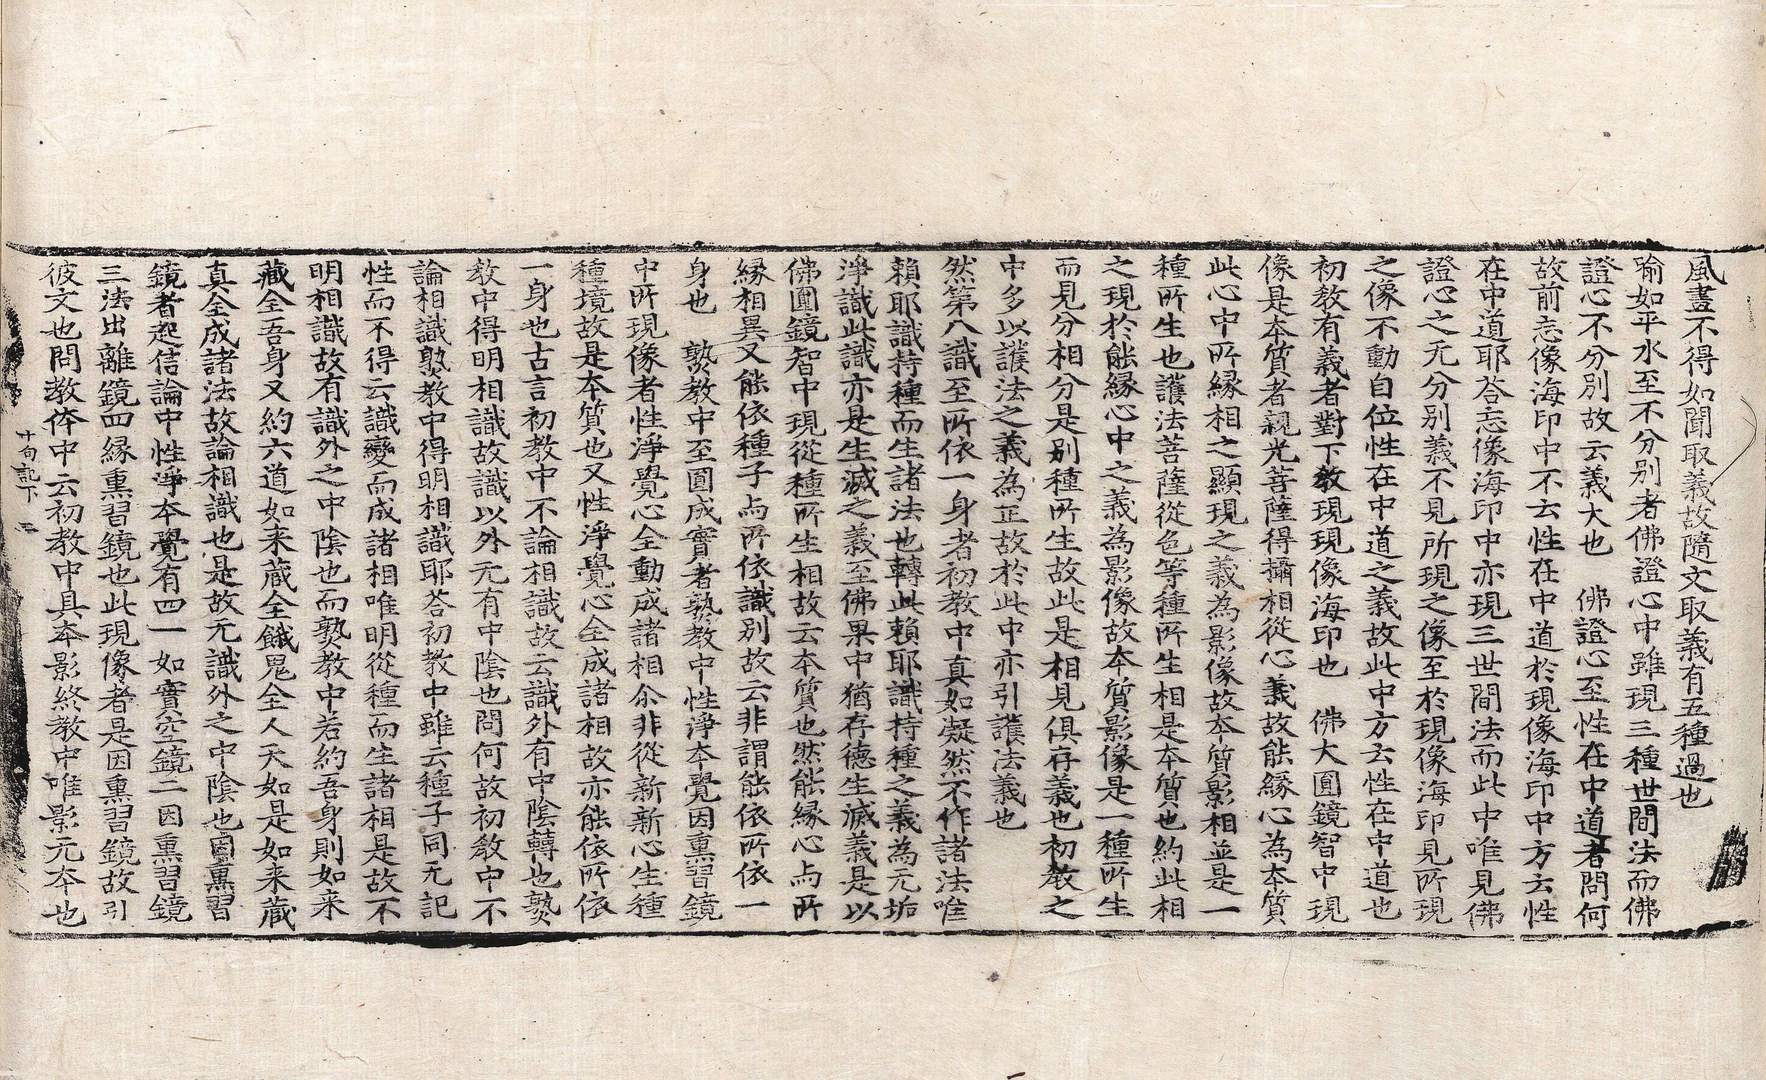 風晝不得如聞取義故隨文取義有五種過也
喻如平水至不分別者佛證心中雖現三種世間法而佛
證心不分別故云義大也　佛證心至性在中道者問何
故前忘像海印中不云性在中道於現像海印中方云性
在中道耶荅忘像海印中亦現三世間法而此中唯見佛
證心之无分別義不見所現之像至於現像海印見所現
之像不動自位性在中道之義故此中方云性在中道也
初敎有義者對下敎現現像海印也　佛大圓鏡智中現
像是本質者親光菩薩得攝相從心義故能緣心為本質
此心中所緣相之顯現之義為影像故本質影相並是一
種所生也護法菩薩從色等種所生相是本質也約此相
之現於能緣心中之義為影像故本質影像是一種所生
而見分相分是別種所生故此是相見俱存義也初敎之
中多以護法之義為正故於此中亦引護法義也
然第八識至所依一身者初敎中真如凝然不作諸法唯
賴耶識持種而生諸法也轉此賴耶識持種之義為无垢
淨識此識亦是生滅之義至佛果中猶存德生滅義是以
佛圓鏡智中現從種所生相故云本質也然能緣心与所
緣相異又能依種子与所依識別故云非謂能依所依一
身也　熟敎中至圓成實者熟敎中性淨本覺因熏習鏡
中所現像者性淨覺心全動成諸相尒非從新新心生種
種境故是本質也又性淨覺心全成諸相故亦能依所依
一身也古言初敎中不論相識故云識外有中陰轉也熟
敎中得明相識故識以外无有中陰也問何故初敎中不
論相識熟敎中得明相識耶荅初敎中雖云種子同无記
性而不得云識變而成諸相唯明從種而生諸相是故不
明相識故有識外之中陰也而熟敎中若約吾身則如来
藏全吾身又約六道如来蔵全餓鬼全人天如是如来蔵
真全成諸法故論相識也是故无識外之中陰也因熏習
鏡者起信論中性淨本覺有四一如實空鏡二因熏習鏡
三法出離鏡四緣熏習鏡也此現像者是因熏習鏡故引
彼文也問敎体中云初敎中具本影終敎中唯影无本也
十句記下　二